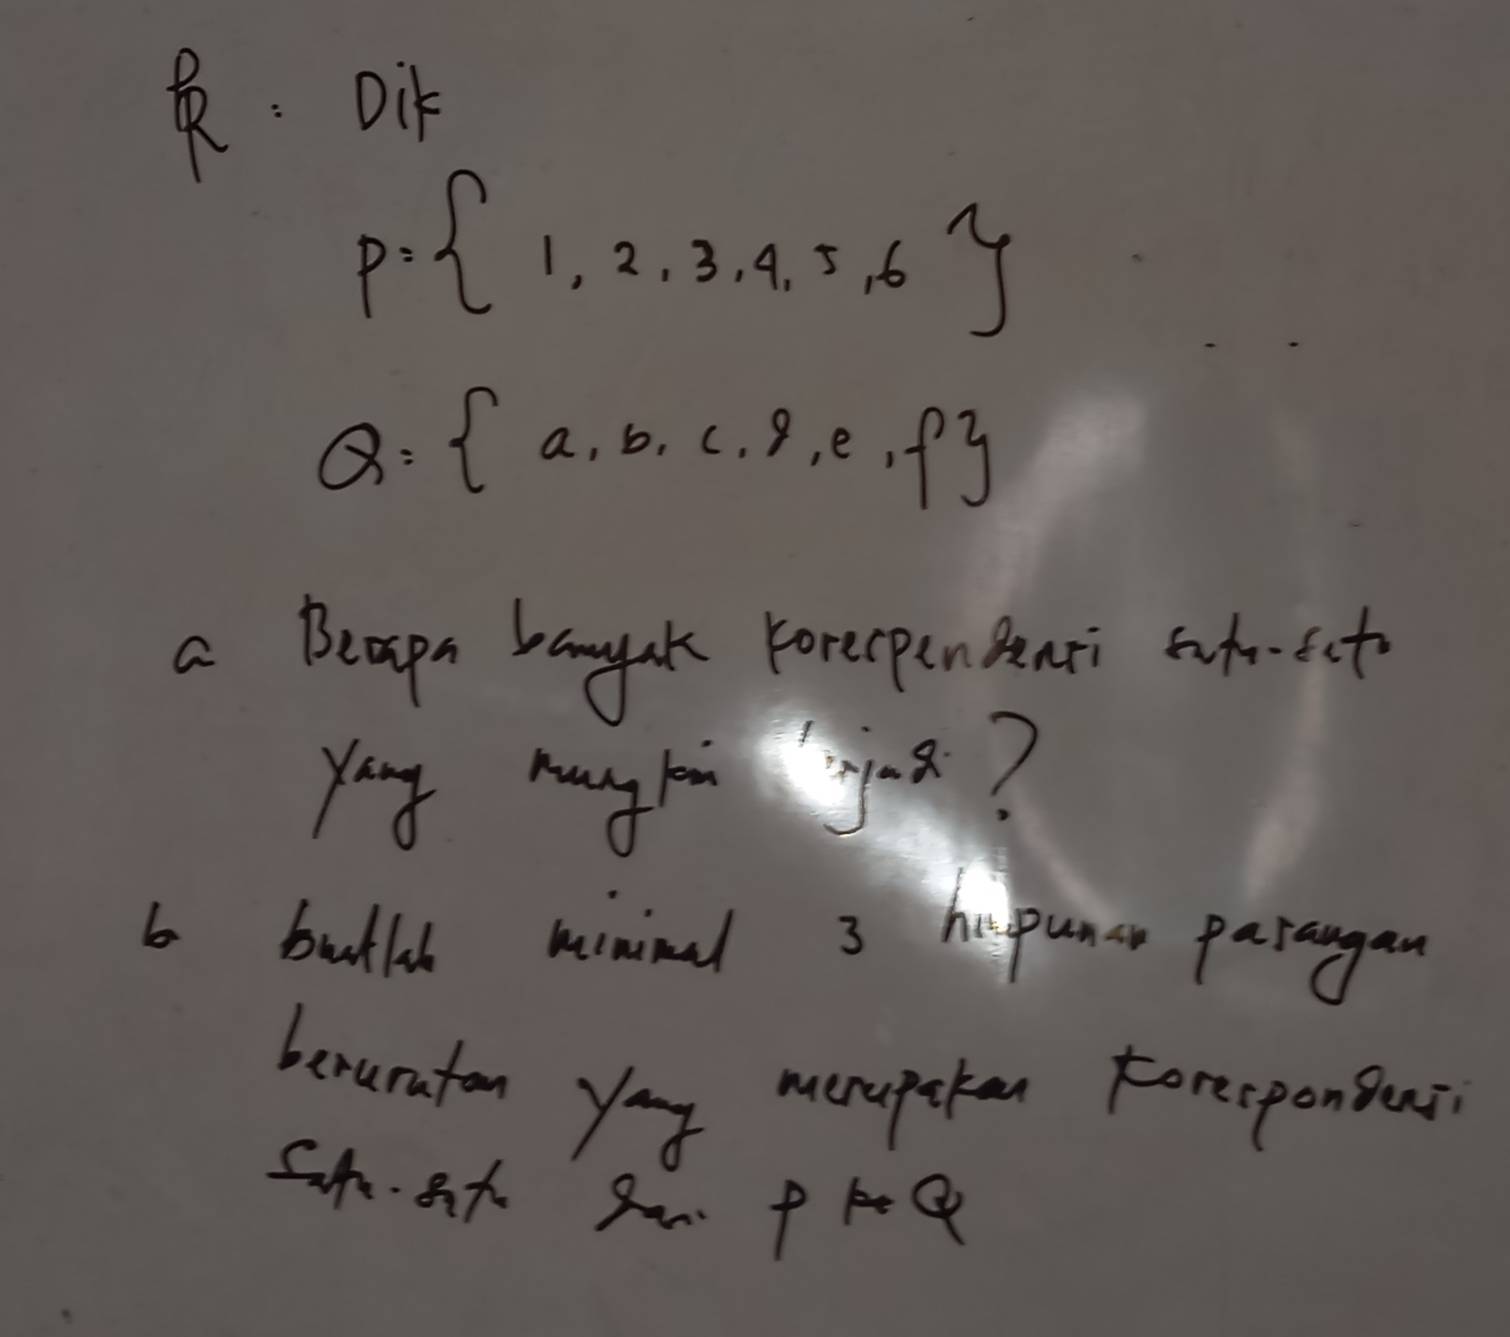 PR : Dik
P = { 1, 2, 3, 4, 5, 6 }
Q = { a, b, c, d, e, f }
a Berapa banyak korespendensi satu-satu
yang mungkin terjadi ?
b buatlah minimal 3 himpunan pasangan
berurutan yang merupakan korespondensi
satu-satu dari P ke Q